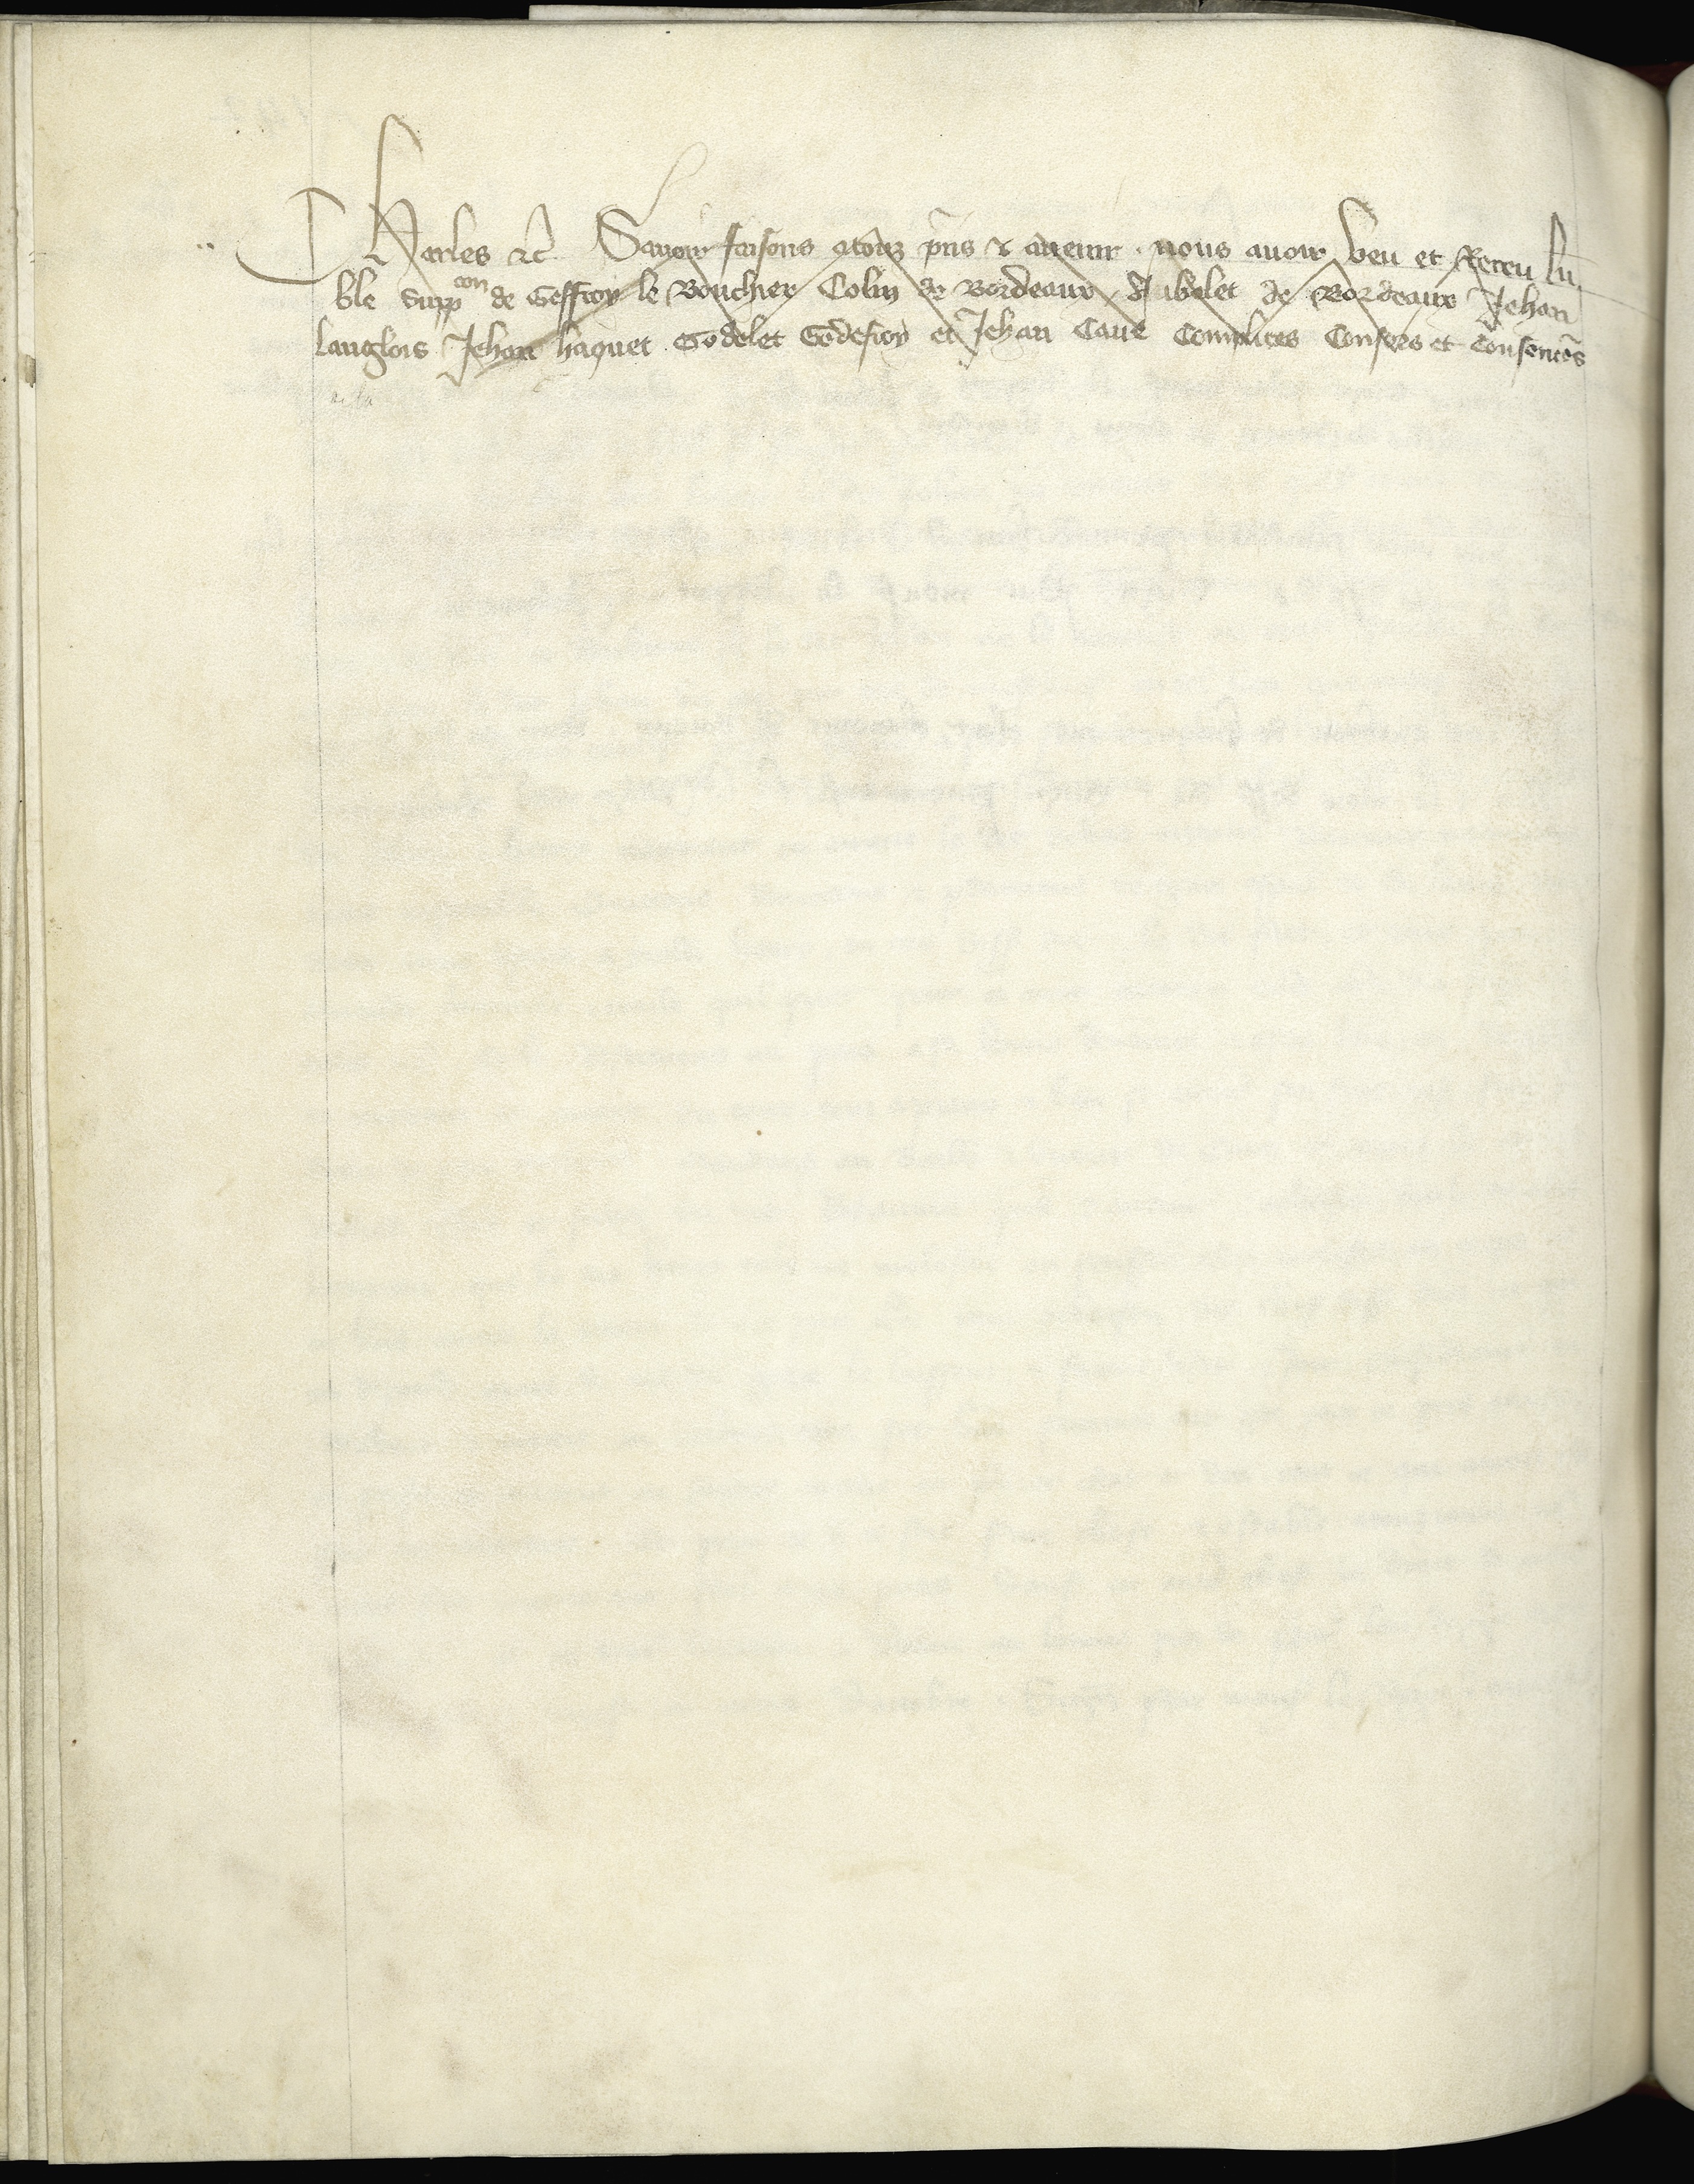 Charles etc. Savoir faisons a touz p̃ns & avenir . nous avoir veu et Receu lu
ble suppcon de Geffroy le Bouchier Colin de Bordeaux de Bordeaux Jehan
langlois Jehan haquet Godelet Godefroy et Jehan Cave Complices Consors et consentãs